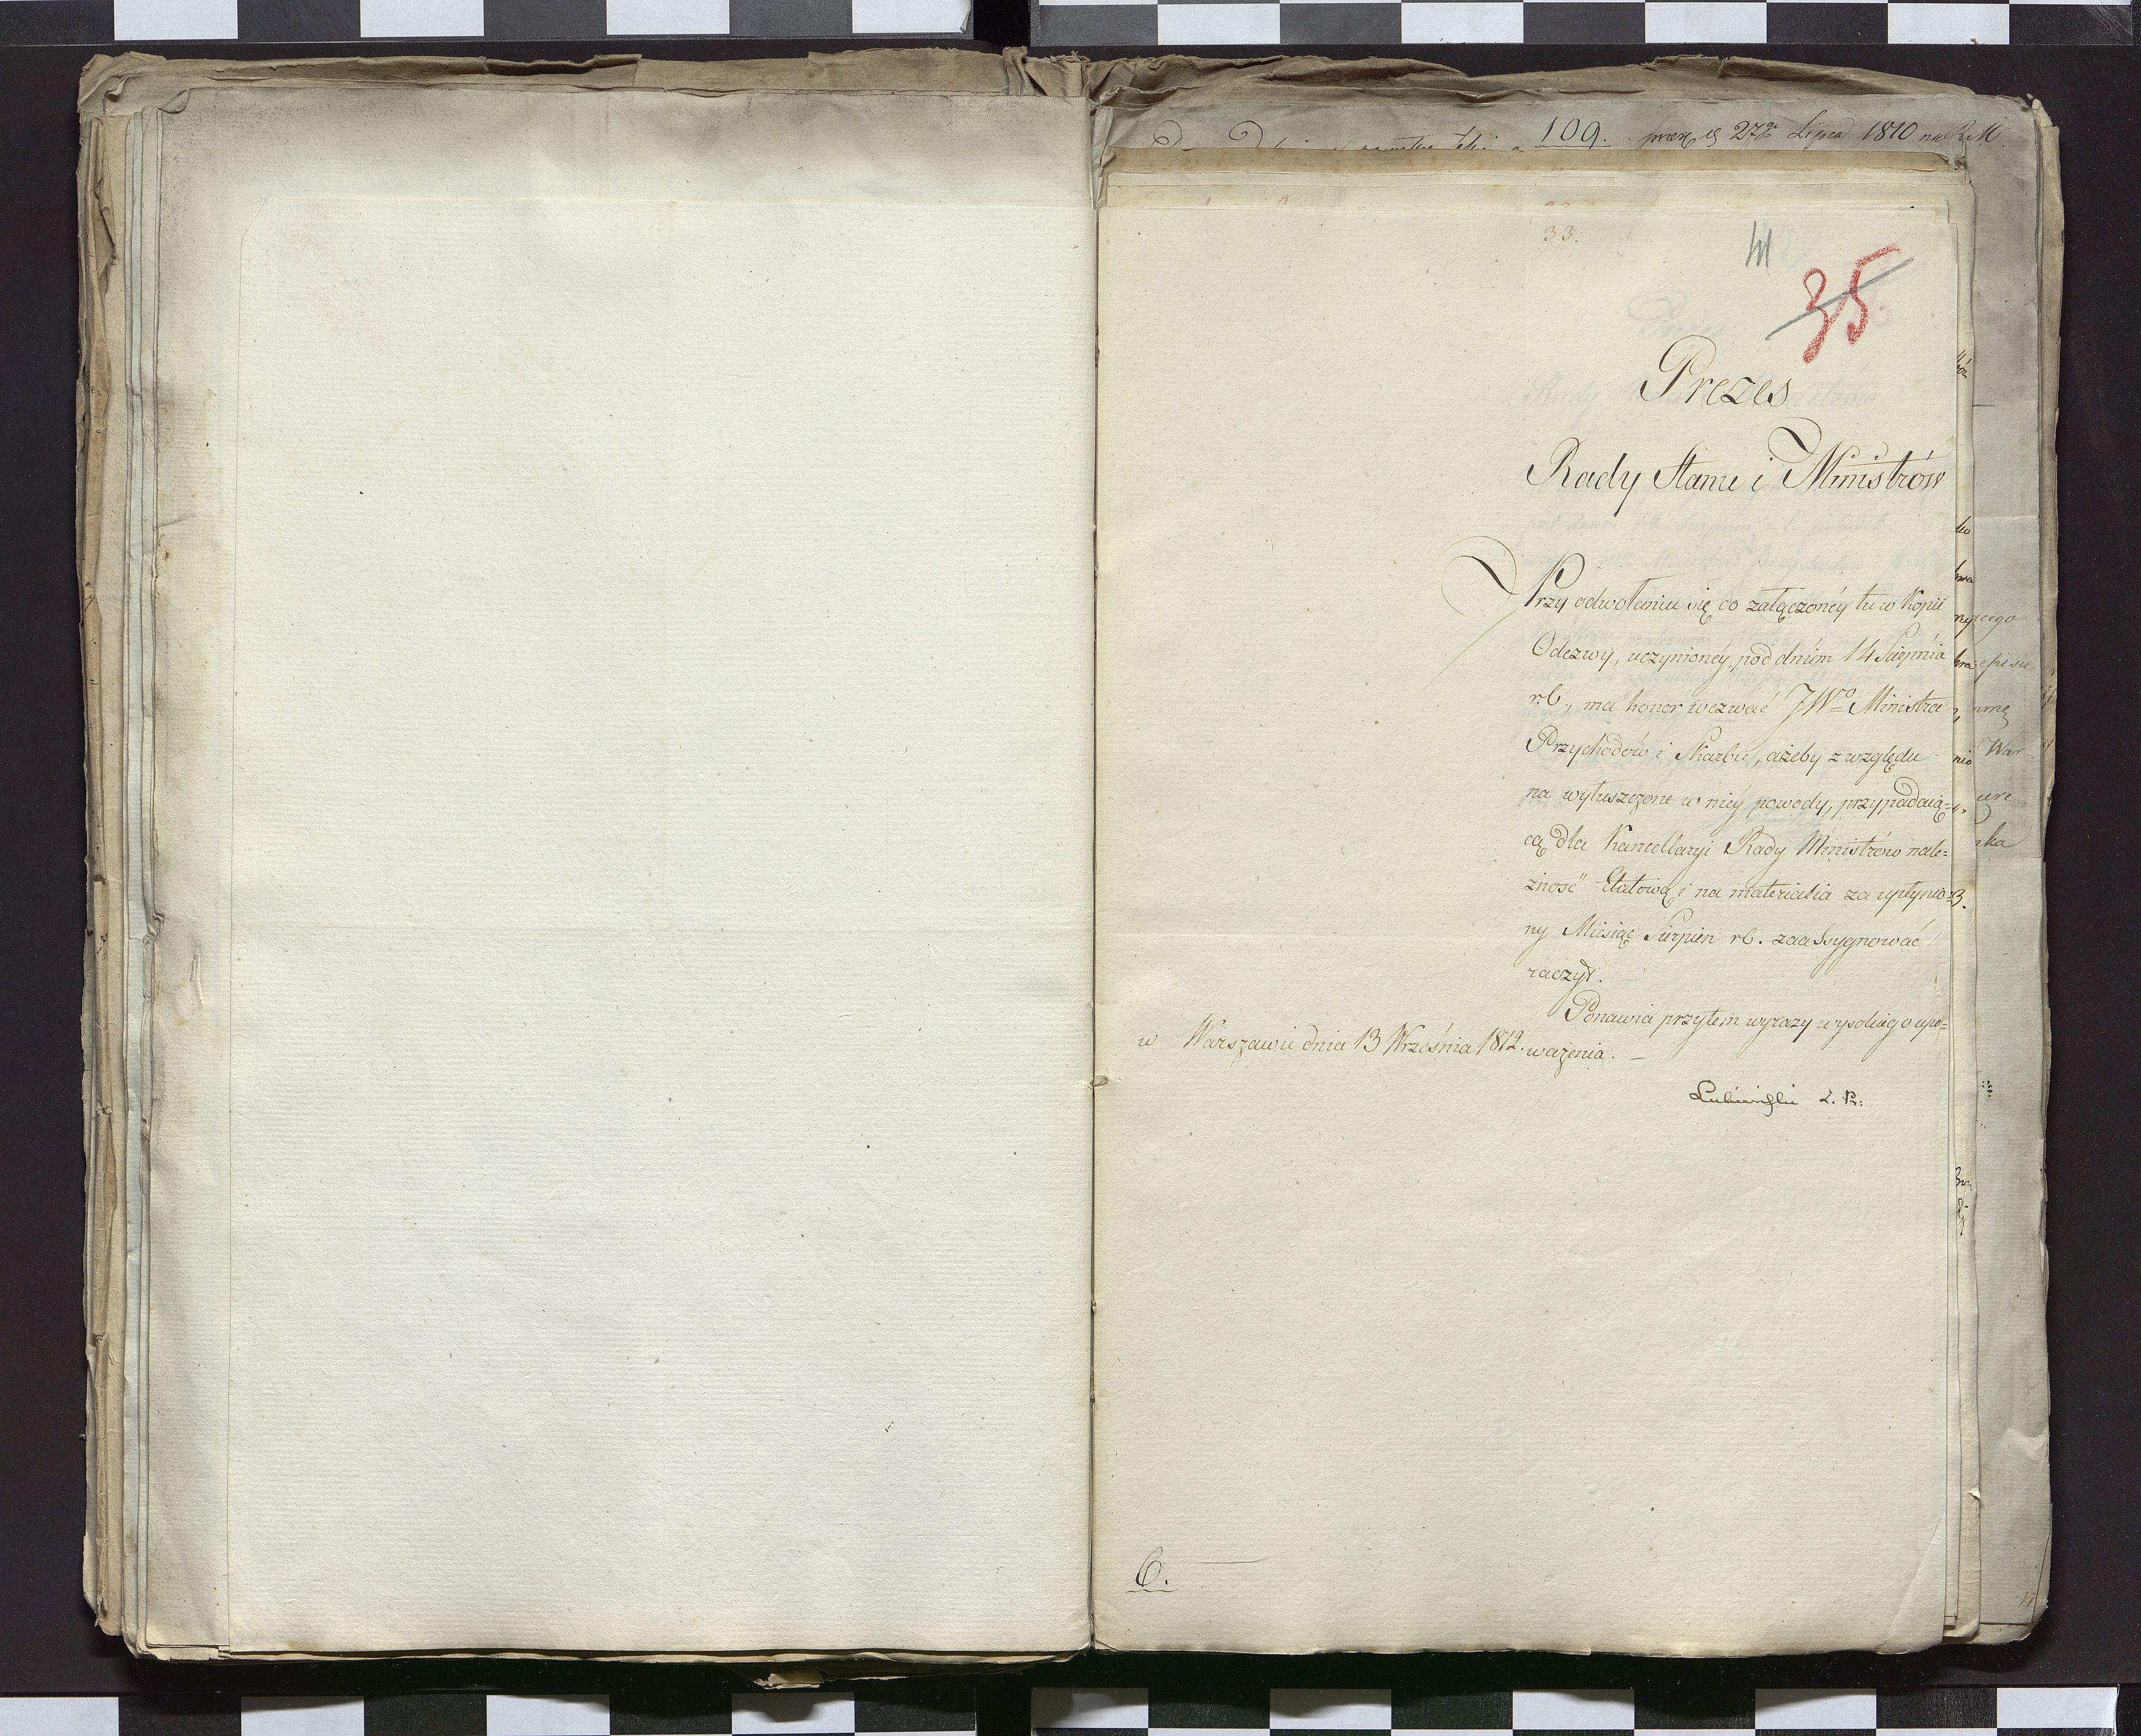 109. 27go Lipca 1810
33.
111
35
Prezes
Rady Stanu i Ministrów
Przy odwołaniu się do załączonéy tu w Kopii
Odezwy, uczynionéy, pod dniem 14 Sierpnia
r.b., ma honor wezwać JWgo Ministra
Przychodów i Skarbu, ażeby z względu
na wyłuszczone w niéy powody, przypadaią=
cą dla Kancellaryi Rady Ministrów nale=
żność Etatową i na materialia za upłynio=
ny Miesiąc Sierpień r.b. zaassygnować
raczył.
Ponawia przytem wyrazy wysokiego upo=
ważenia.
w Warszawie dnia 13 Września 1812.
C.